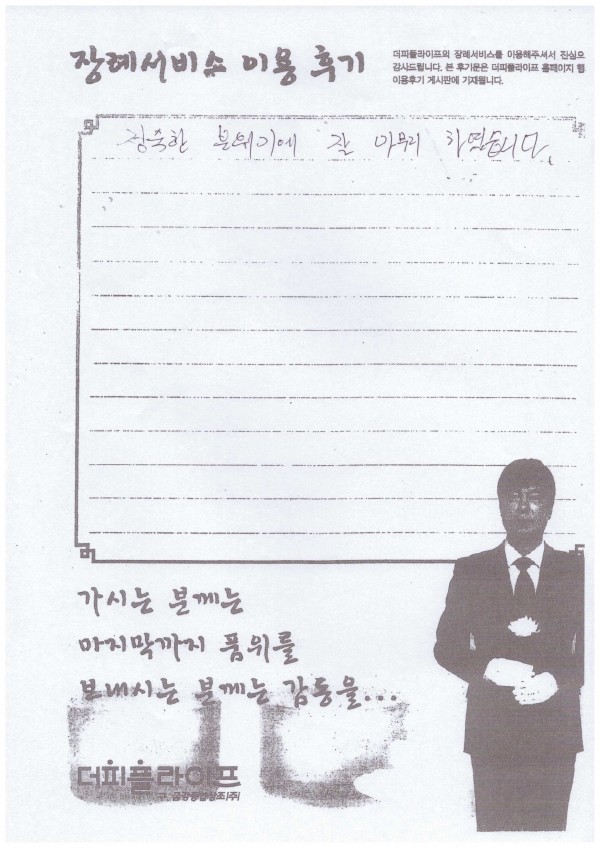 장례서비스 이용 후기
더피플라이프의 장례서비스를 이용해주셔서 진심으
감사드립니다. 본 후기문은 더피플라이프 홈페이지 웹
이용후기 게시판에 기재됩니다.
정숙한 분위기에 잘 마무리 하였습니다.
가시는 분께는
마지막까지 품위를
보내시는 분께는 감동을...
더피플라이프
금강종합상조(주)